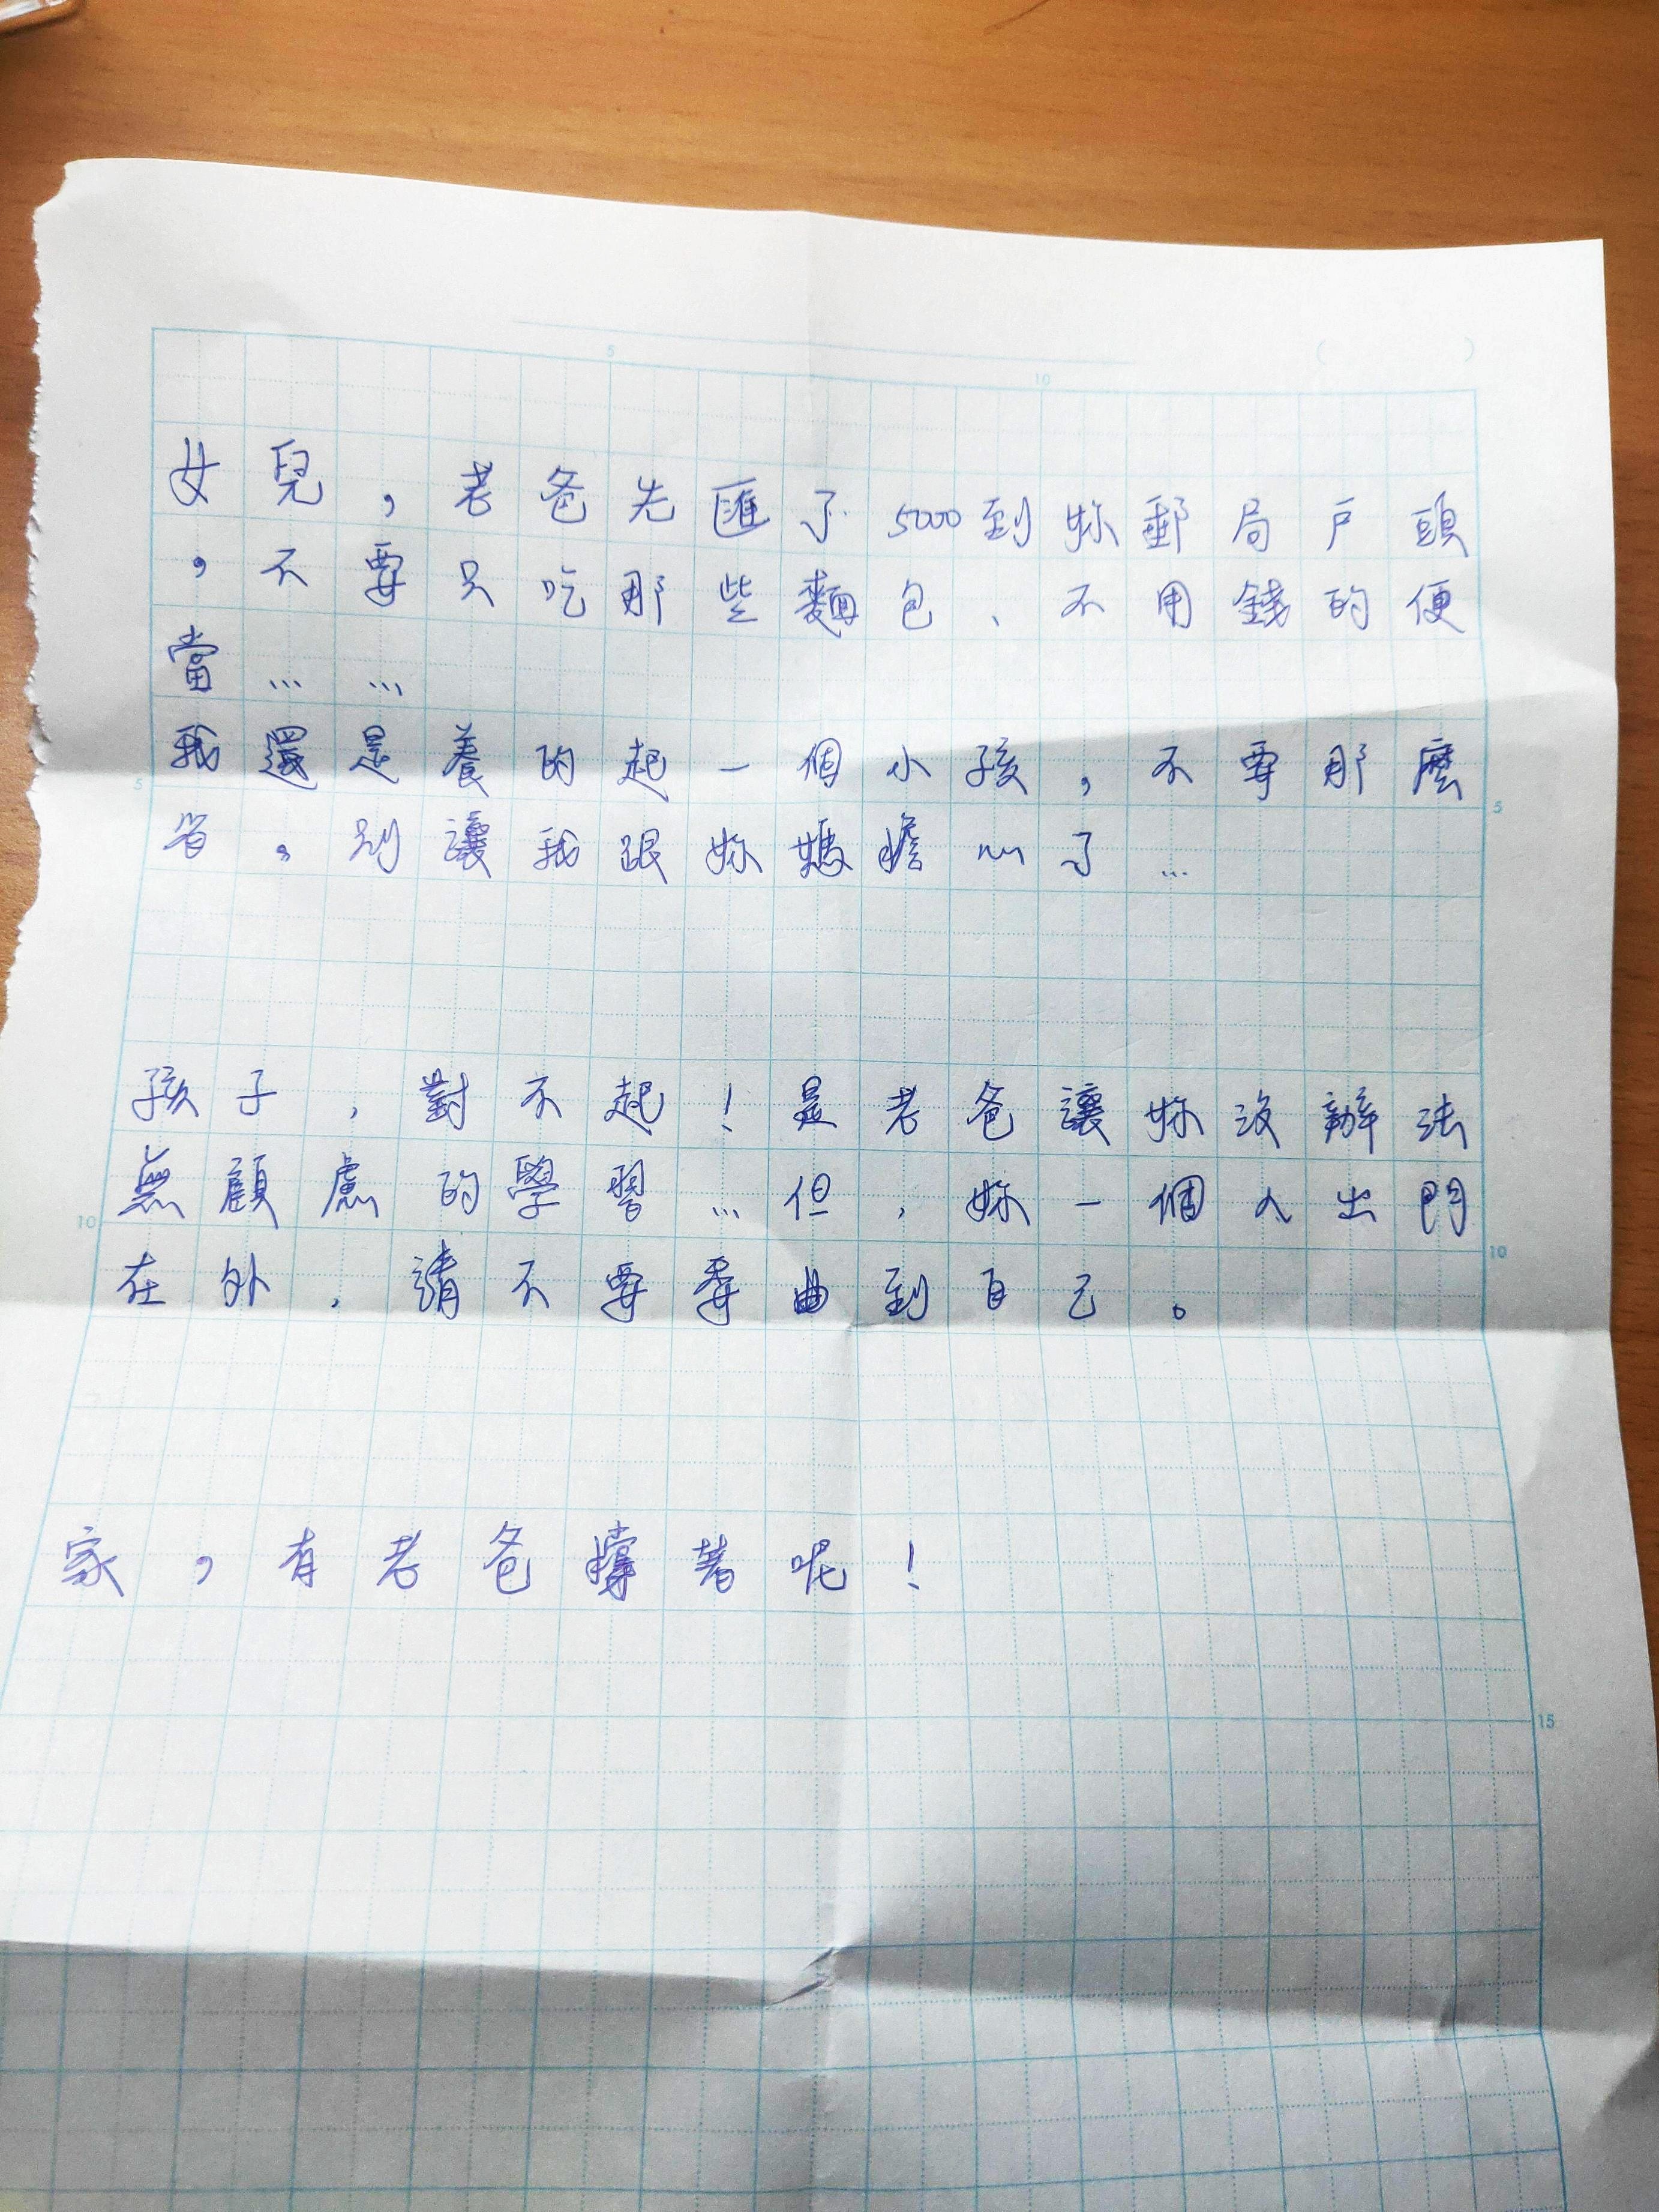 女兒，老爸先匯了5000到妳郵局戶頭
，不要只吃那些麵包、不用錢的便
當……
我還是養的起一個小孩，不要那麼
省。別讓我跟妳媽擔心了…
孩子，對不起！是老爸讓妳沒辦法
無顧慮的學習…但，妳一個人出門
在外，請不要委曲到自己。
家，有老爸撐著呢！
5
10
(          )
5
5
10
10
15